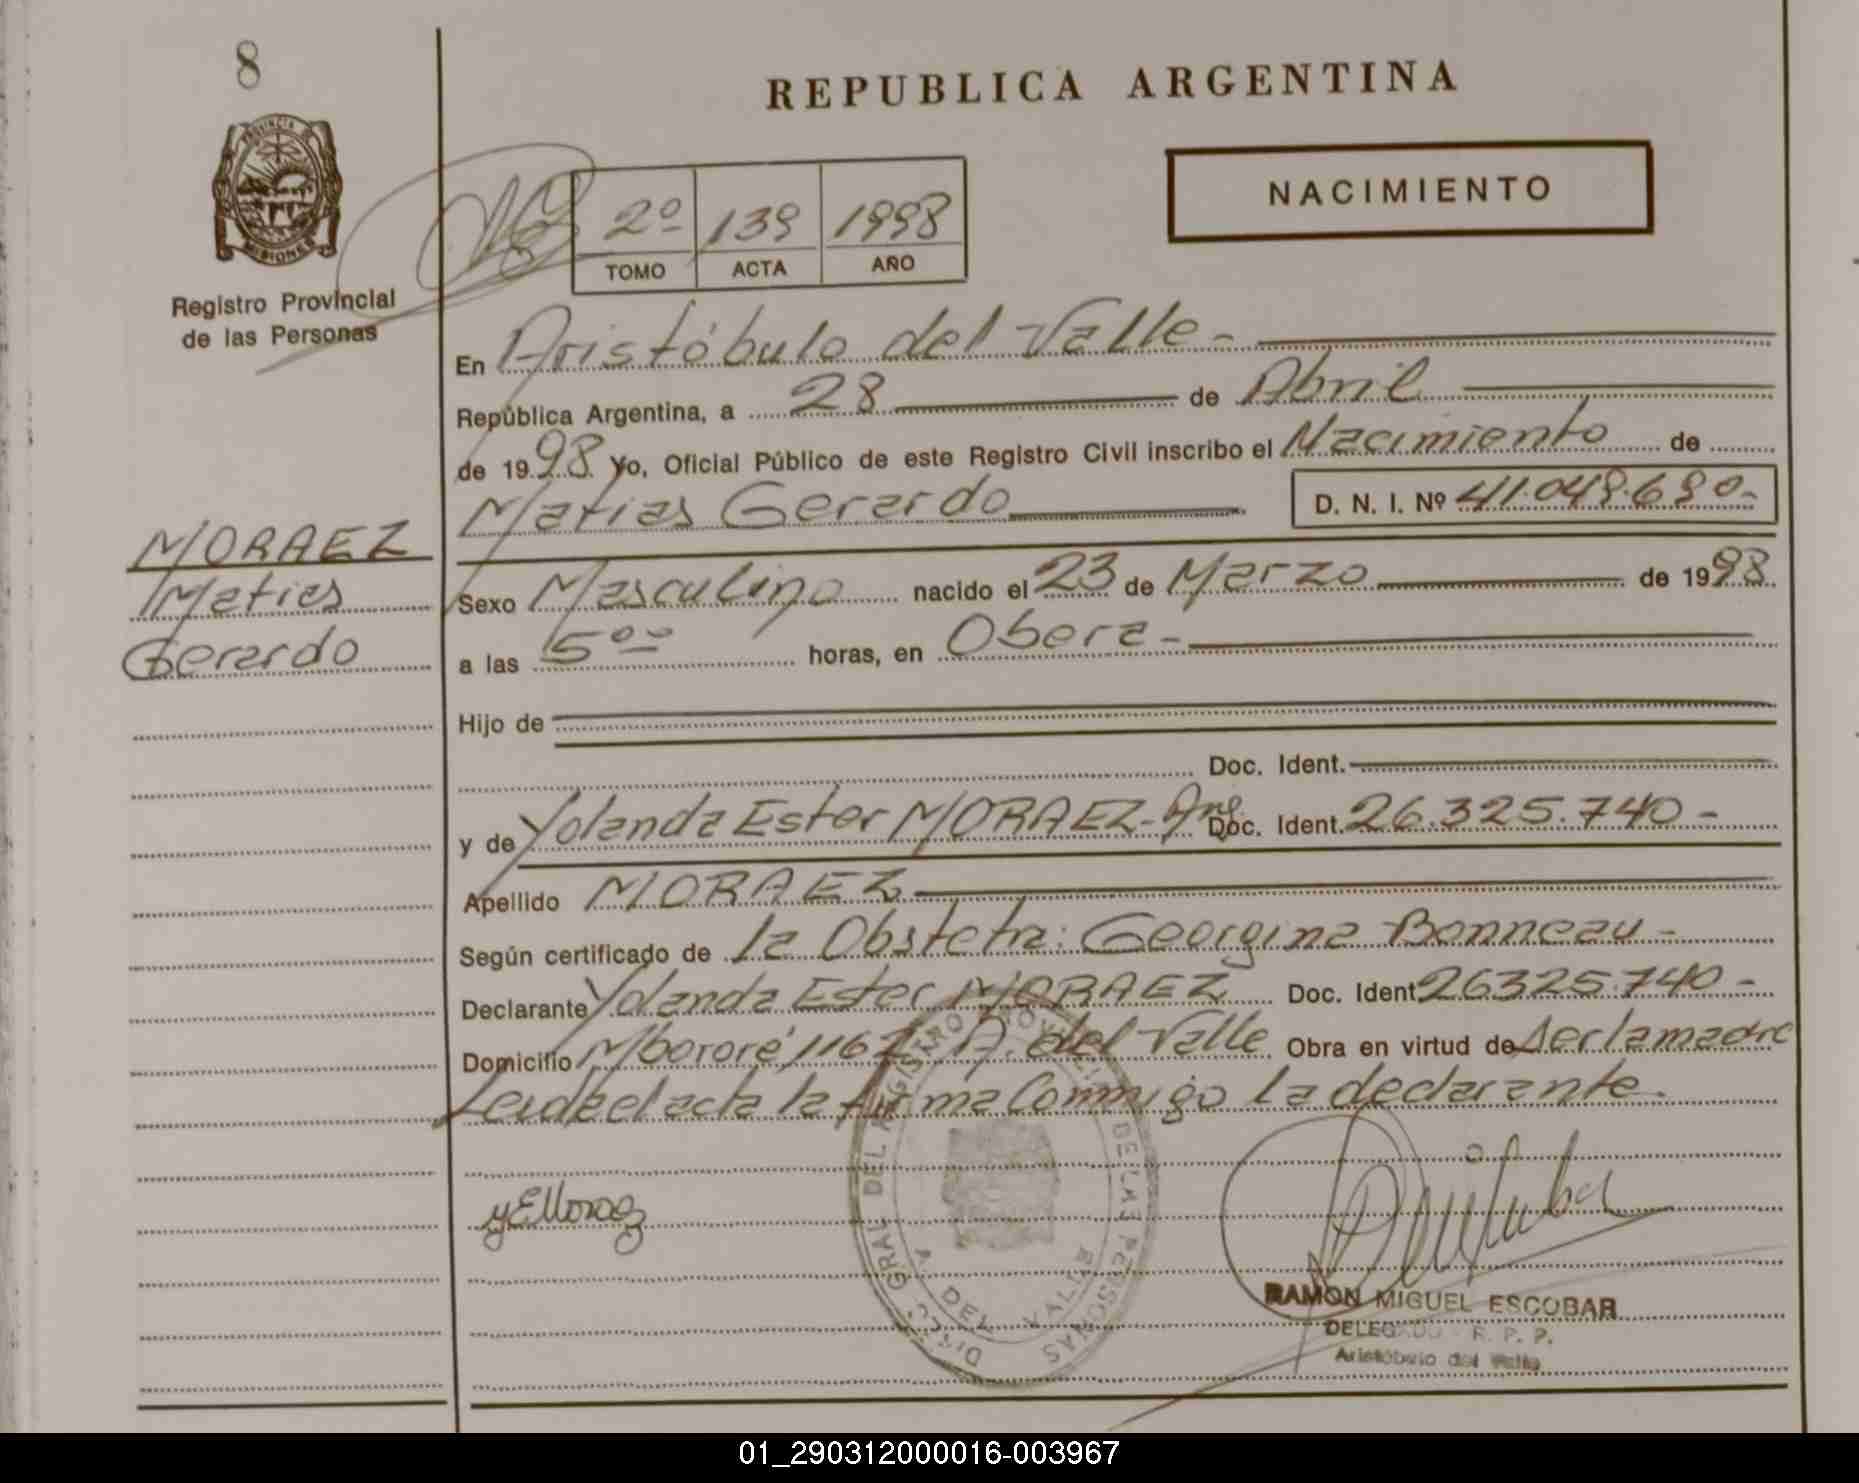 8
REPUBLICA ARGENTINA
PROVINCIA DE
MISIONES
Registro Provincial
de las Personas
2º 139 1998
TOMO ACTA AÑO
NACIMIENTO
En Aristóbulo del Valle -
República Argentina, a 28 de Abril
de 1998 Yo, Oficial Público de este Registro Civil inscribo el Nacimiento de
Matias Gerardo D. N. I. Nº 41.049.690-
MORAEZ
Matias
Gerardo
Sexo Masculino nacido el 23 de Marzo de 1998
a las 5ºº horas, en Obera -
Hijo de
Doc. Ident.
y de Yolanda Ester MORAEZ - Arg Doc. Ident. 26.325.740 -
Apellido MORAEZ
Según certificado de la Obstetra: Georgina Bonneau -
Declarante Yolanda Ester MORAEZ Doc. Ident 26325.740 -
Domicilio Mbororé 1162 A. del Valle Obra en virtud de ser la madre
Leida el acta la firma Conmigo la declarante.
YEMoraez
DIRECC. GRAL DEL REGISTRO PROVINCIAL DE LAS PERSONAS
A. DEL VALLE
RAMON MIGUEL ESCOBAR
DELEGADO R. P. P.
Aristóbulo del Valle
01_290312000016-003967